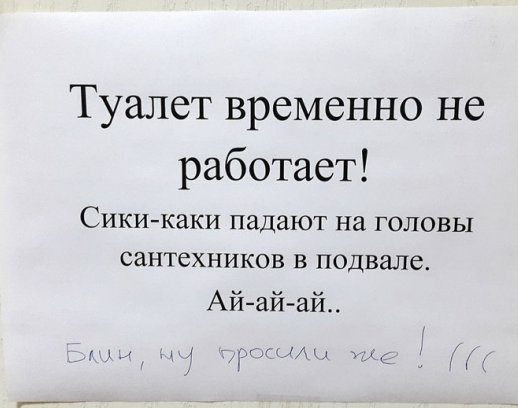 Туалет временно не
работает!
Сики-каки падают на головы
сантехников в подвале.
Ай-ай-ай..
Блин, ну просили же! (((